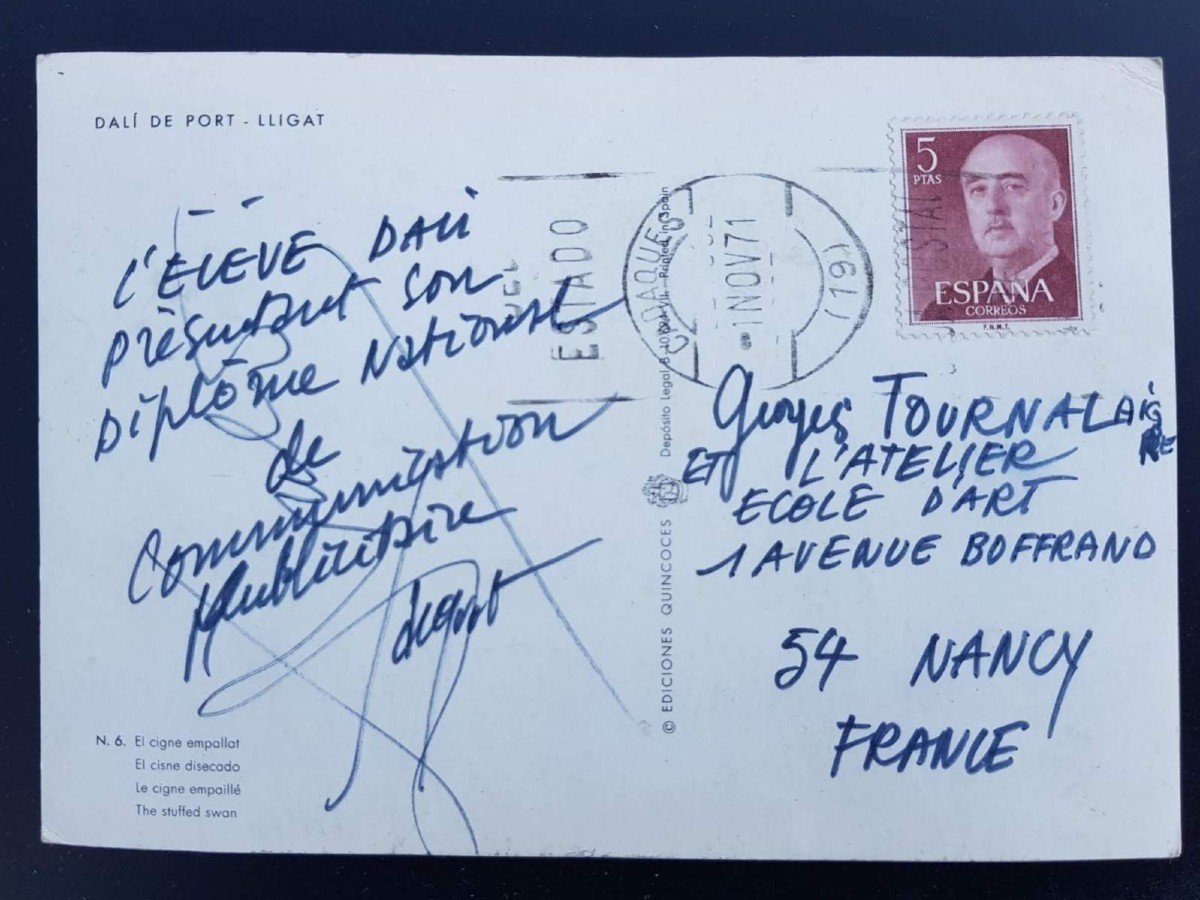 DALÍ DE PORT - LLIGAT
L'ÉLÈVE DALI
présentant son
Diplôme National
de
Communication
Publicitaire
N. 6. El cigne empallat
El cisne disecado
Le cigne empaillé
The stuffed swan
© EDICIONES QUINCOCES
Depósito Legal B.
Printed in Spain
ESTADO
CADAQUES
-1NOV71
5
PTAS
ESPAÑA
CORREOS
F.N.M.T.
Georges TOURNALAIRE
ET L'ATELIER
ECOLE D'ART
1 AVENUE BOFFRAND
54 NANCY
FRANCE